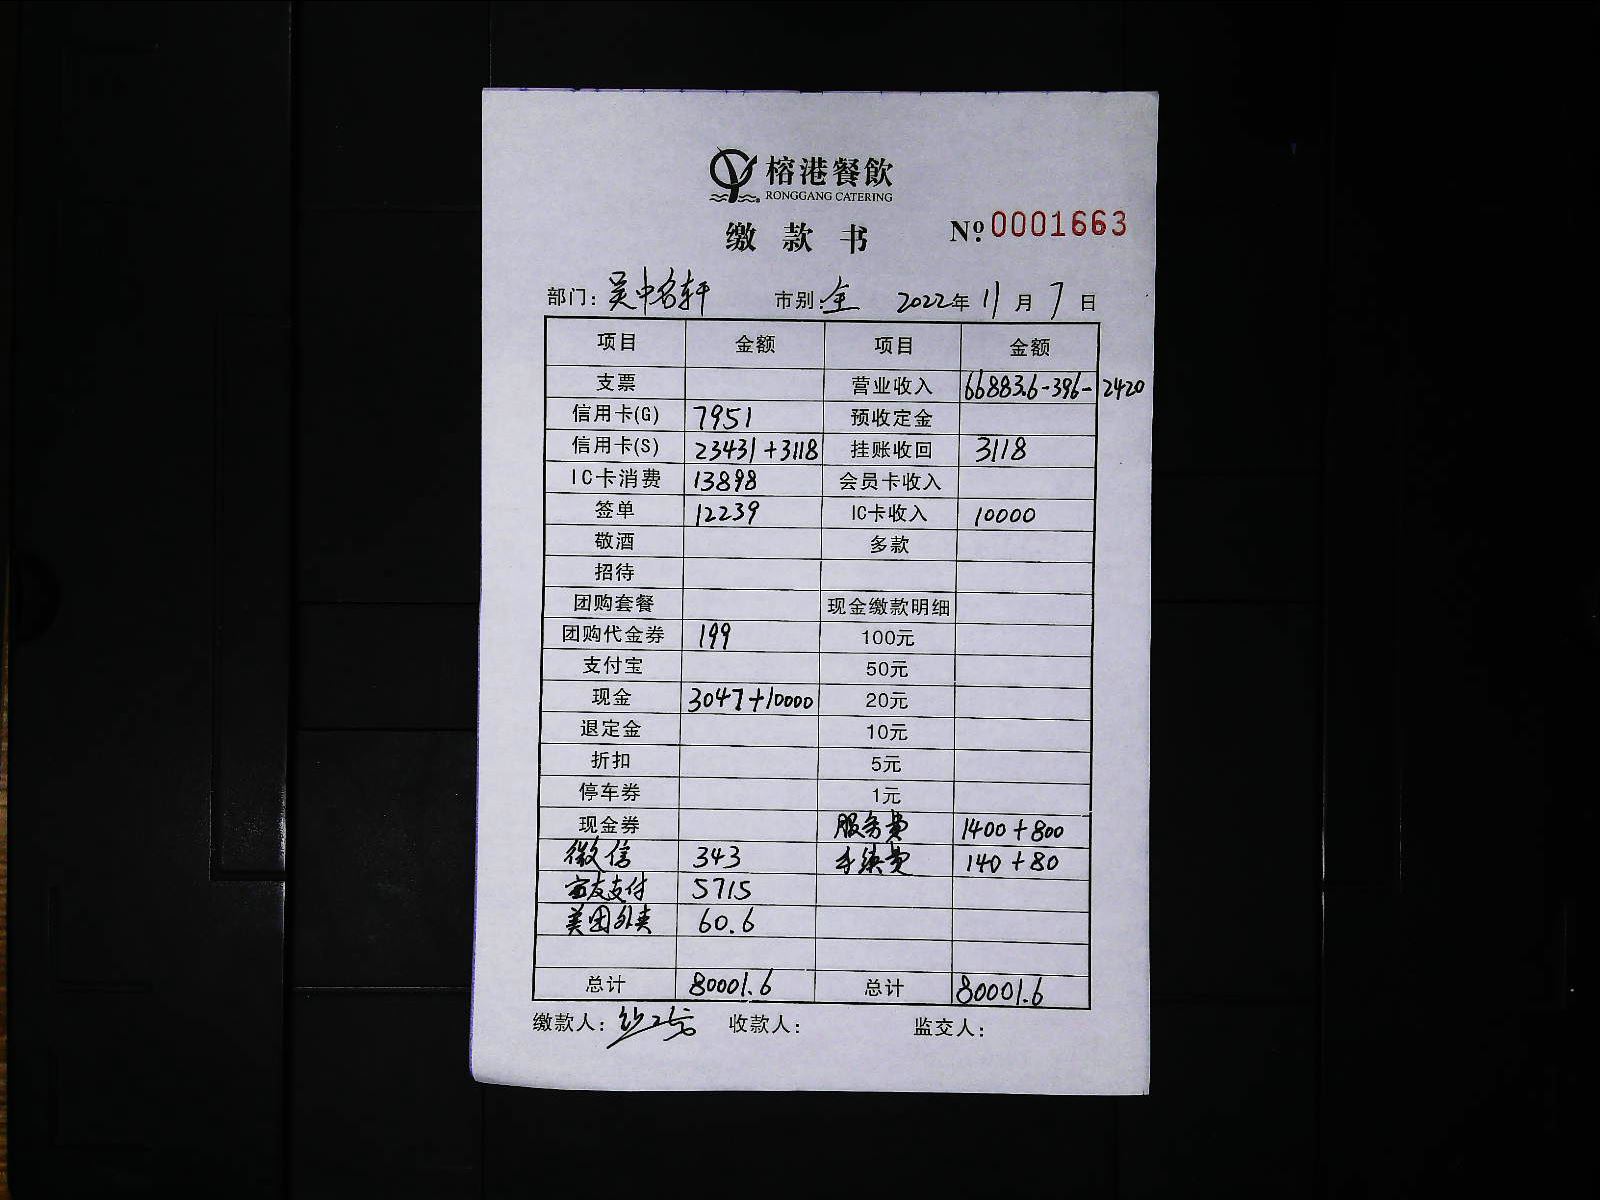 榕港餐飲
RONGGANG CATERING
缴款书 №:0001663
部门:吴中名轩 市别:全 2022年11月7日
项目 金额 项目 金额
支票 营业收入 66883.6-396-2420
信用卡(G) 7951 预收定金
信用卡(S) 23431+3118 挂账收回 3118
IC卡消费 13898 会员卡收入
签单 12239 IC卡收入 10000
敬酒 多款
招待
团购套餐 现金缴款明细
团购代金券 199 100元
支付宝 50元
现金 3047+10000 20元
退定金 10元
折扣 5元
停车券 1元
现金券 服务费 1400+800
微信 343 手续费 140+80
支付 5715
美团外卖 60.6
总计 80001.6 总计 80001.6
缴款人: 收款人: 监交人: